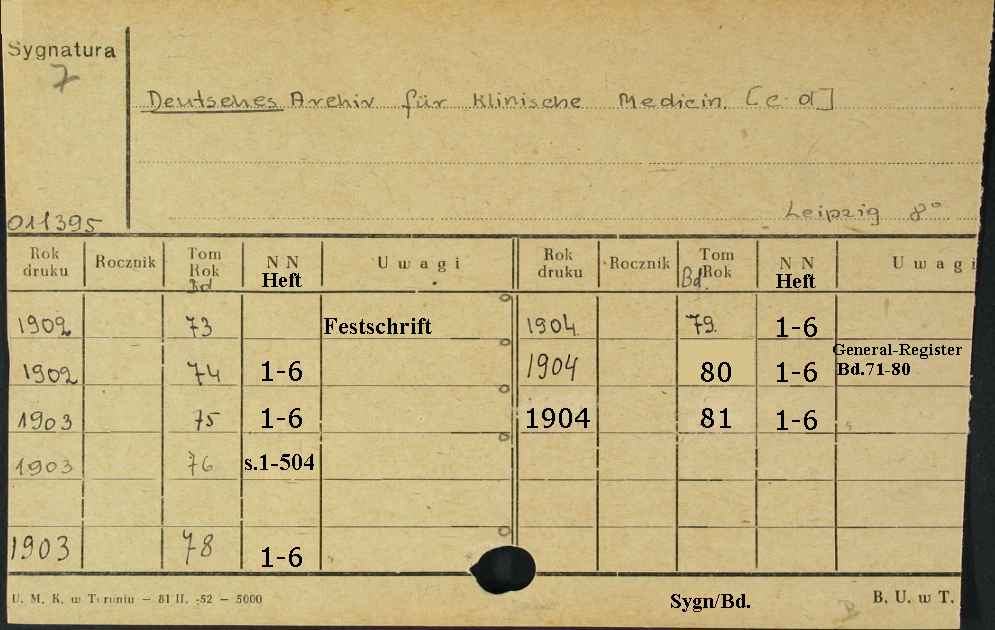 Sygnatura
7
Deutsches Archiv für Klinische Medicin. [c. d.]
Leipzig 8°
011395
Rok druku Rocznik Tom Rok Bd NN Heft Uwagi Rok druku Rocznik Tom Bd. Rok NN Heft Uwagi
1902 73 Festschrift 1904 79. 1-6
1902 74 1-6 1904 80 1-6 General-Register Bd.71-80
1903 75 1-6 1904 81 1-6
1903 76 s.1-504
1903 78 1-6
U. M. K. w Toruniu — 81 II. -52 — 5000
Sygn/Bd.
B. U. w T.